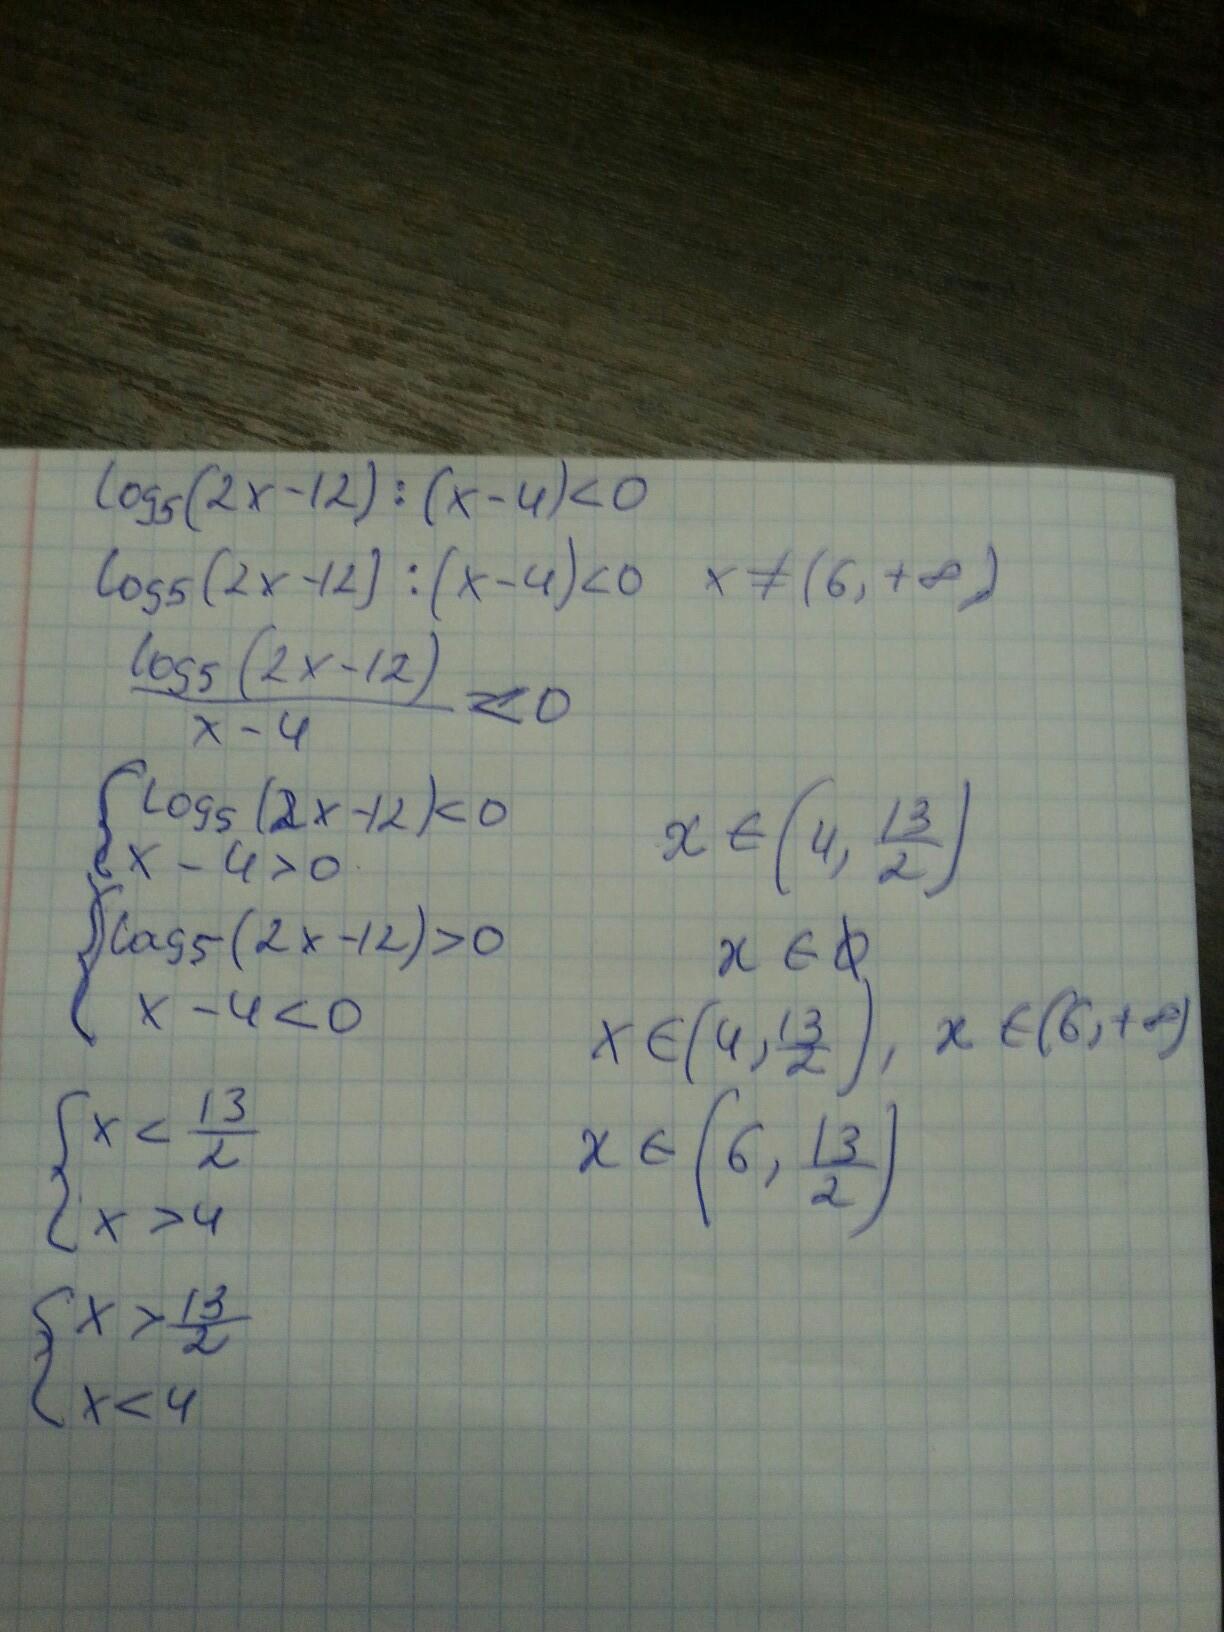 log₅(2x-12):(x-4)<0
log₅(2x-12):(x-4)<0   x≠(6,+∞)
log₅(2x-12)
x-4
<0
log₅(2x-12)<0
x-4>0
log₅(2x-12)>0
x-4<0
{x<13/2
x>4
{x>13/2
x<4
x∈(4,13/2)
x∈∅
x∈(4,13/2), x∈(6,+∞)
x∈(6,13/2)